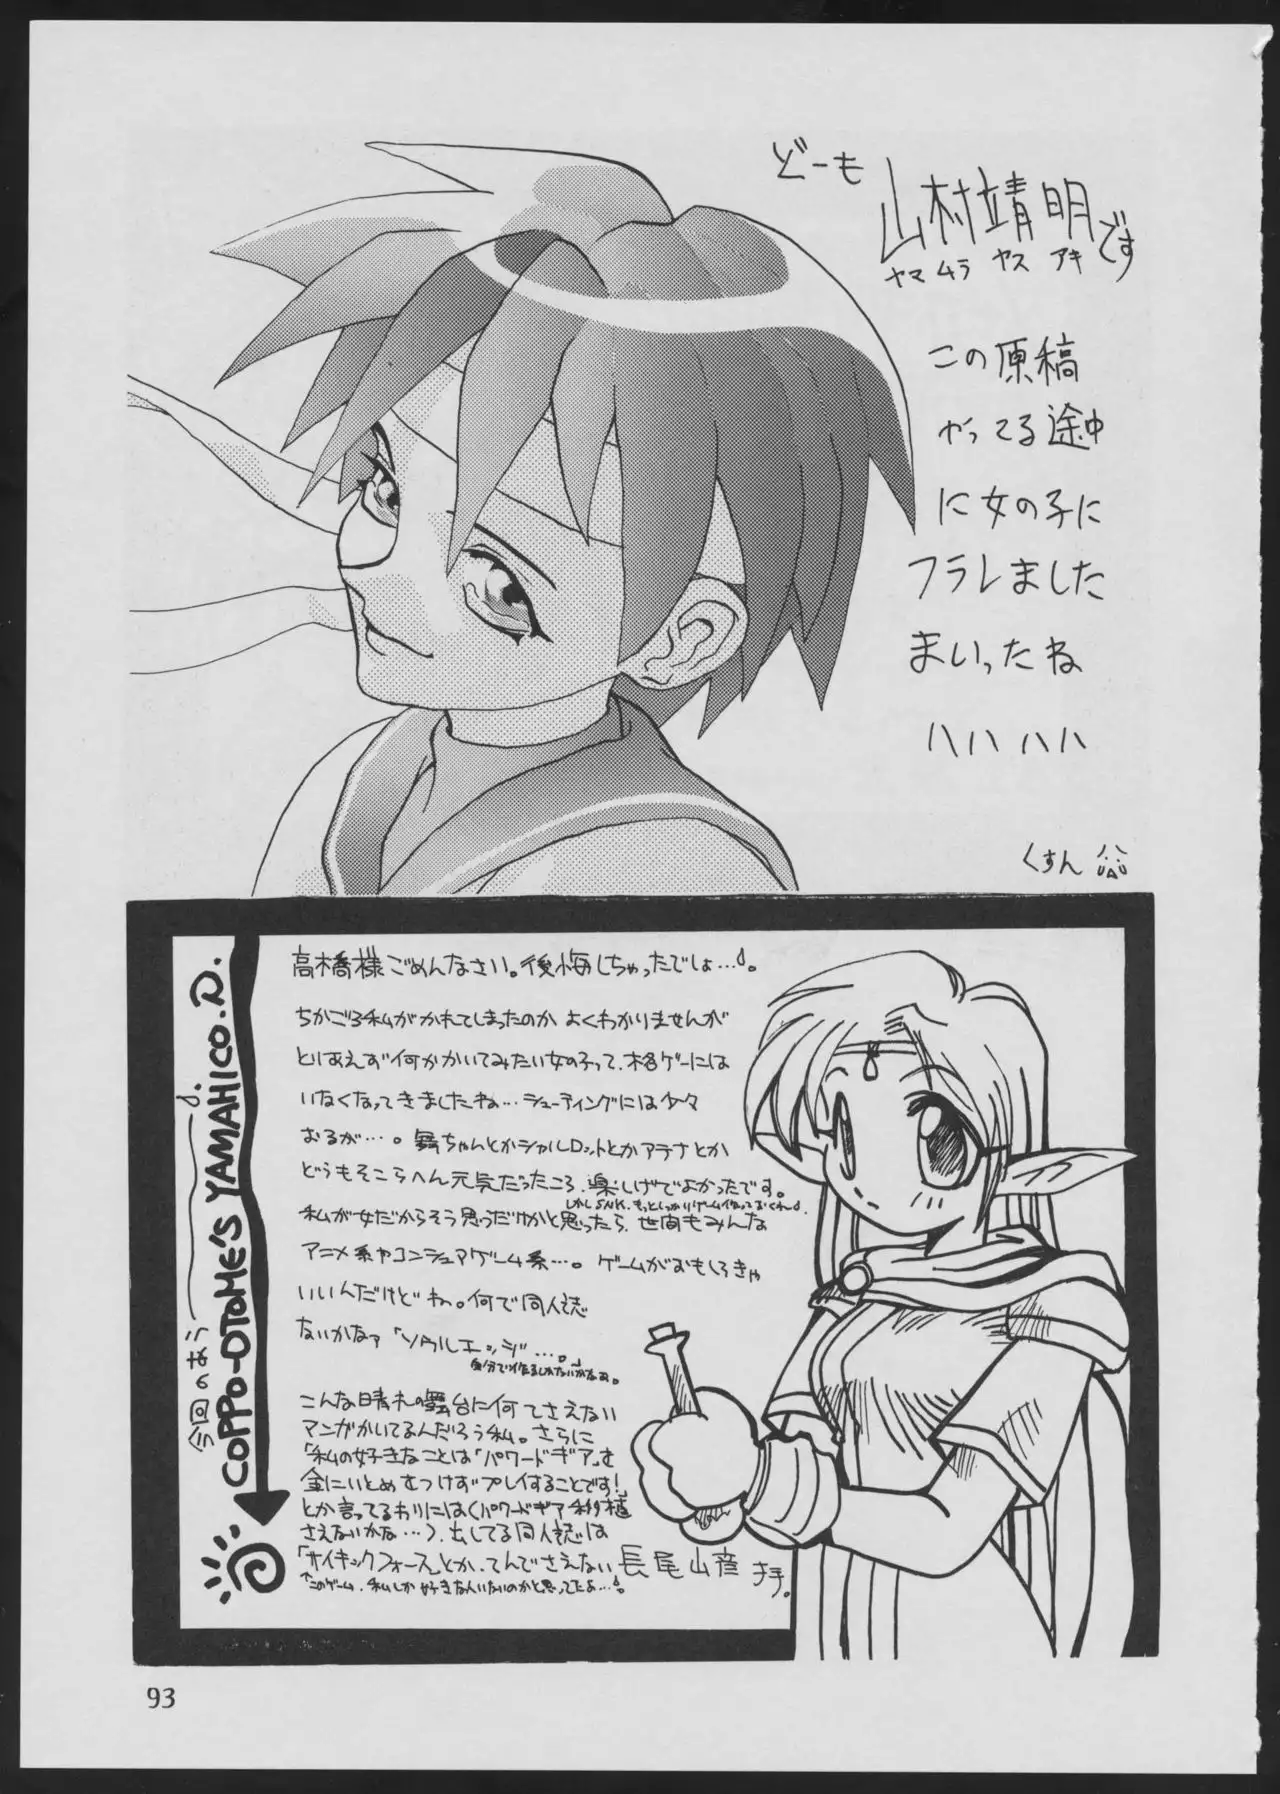 どーも
山村靖明です
ヤマムラ ヤス アキ
この原稿
やってる途中
に女の子に
フラレました
まいったね
ハハハハ
くすん
今回のあら
COPPO-OTOME'S YAMAHICO.D.
高橋様ごめんなさい。後悔しちゃったでしょ…。
ちかごろ私がかれてしまったのか よくわかりませんが
とりあえず何かかいてみたい女の子って、格ゲーには
いなくなってきましたね…シューティングには少々
おるが…。舞ちゃんとかシャルロットとかアテナとか
どうもそこらへん元気だったころ、楽しげでよかったです。
しかしSNK、もっとしっかりゲーム作っておくれ
私が女だからそう思うだけかと思ったら、世間もみんな
アニメ系やコンシュアゲーム系…。ゲームがおもしろきゃ
いいんだけどね。何で同人誌
ないかなァ「ソウルエッジ」…。
自分で作るしかないかなぁ。
こんな晴れの舞台に何てさえない
マンガかいてるんだろう私。さらに
「私の好きなことは「パワードギア」を
金にいとめをつけずプレイすることです!」
とか言ってるわりには(パワードギア移植
さえないかな…)、出してる同人誌は
「サイキックフォース」とか、てんでさえない 長尾山彦 拝。
↑このゲーム、私しか好きな人いないのかと思ってたよ…
93